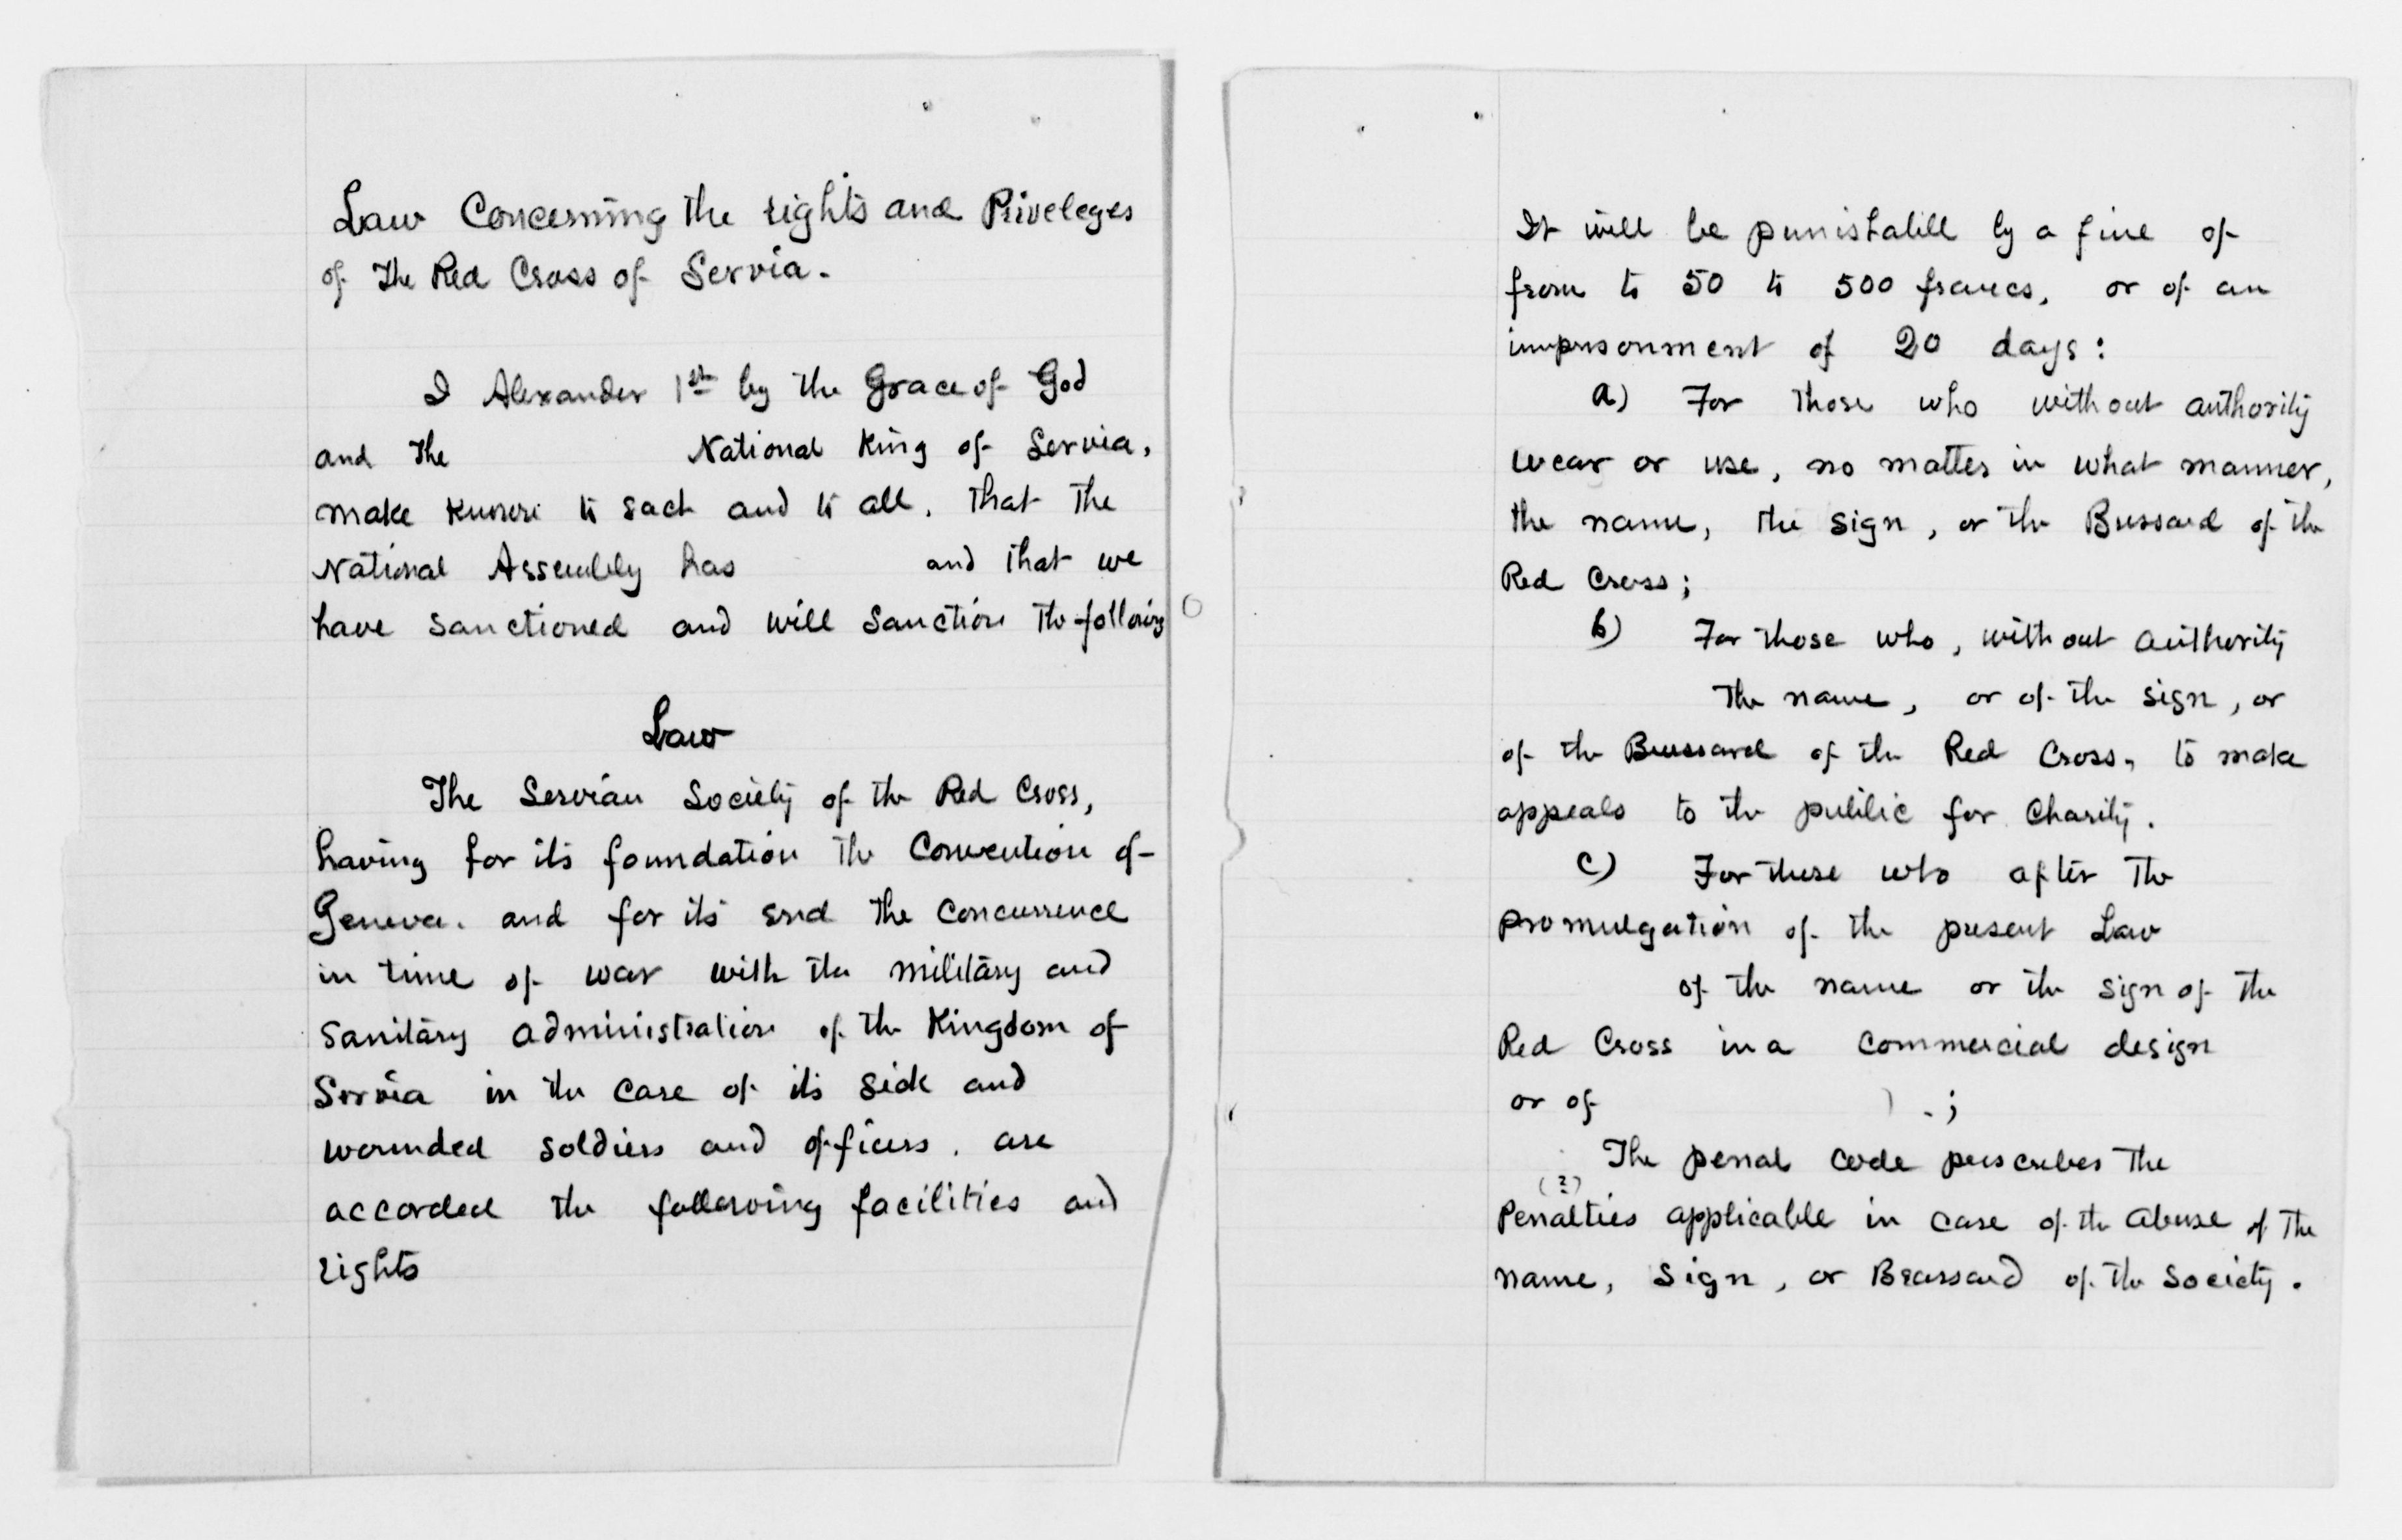 Law Concerning the rights and Priveleges
of the Red Cross of Servia.
I Alexander 1st by the Grace of God
and the National King of Servia,
make known to each and to all, that the
National Assembly has and that we
have sanctioned and will sanction the following
Law
The Servian Society of the Red Cross,
having for its foundation the Convention of
Geneva, and for its end the concurrence
in time of war with the military and
sanitary administration of the Kingdom of
Servia in the case of its sick and
wounded soldiers and officers, are
accorded the following facilities and
rights
It will be punishabill by a fine of
from to 50 to 500 francs, or of an
imprisonment of 20 days:
a) For those who without authority
wear or use, no matter in what manner,
the name, the sign, or the Brassard of the
Red Cross;
b) For those who, without authority
the name, or of the sign, or
of the Brassard of the Red Cross, to make
appeals to the public for Charity.
c) For those who after the
promulgation of the present Law
of the name or the sign of the
Red Cross in a commercial design
or of ) . ;
The penal code prescribes the
(?)
Penalties applicable in case of the abuse of the
name, sign, or Brassard of the Society.